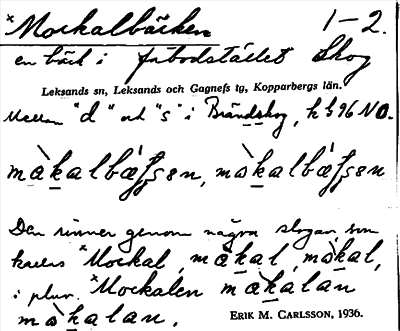 ×Mockalbäcken 1-2.
en bäck i fäbodstället Skog
Leksands sn, Leksands och Gagnefs tg, Kopparbergs län.
Mellan "d" och "s" i Brändskog, hb 96 NO.
Den rinner genom några slogar som
kallas ×Mockal, màkal, måkal,
i plur. ×Mockalen màkalan
måkalan.
ERIK M. CARLSSON, 1936.